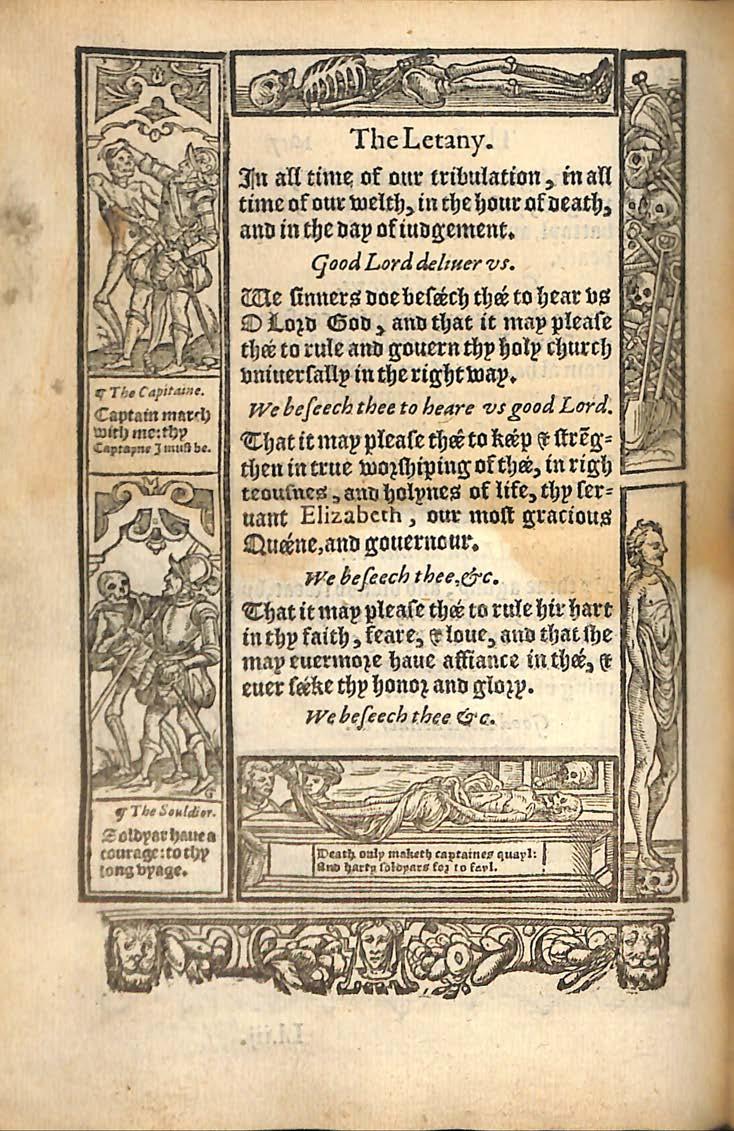 The Letany.
In all time of our tribulation, in all
time of our welth, in the hour of death,
and in the day of iudgement.
Good Lord deliuer vs.
We sinners doe beséech thée to hear vs
O Lord God, and that it may please
thée to rule and gouern thy holy church
vniuersally in the right way.
We beseech thee to heare vs good Lord.
That it may please thée to kéep & strẽg-
then in true worshiping of thée, in righ
teousnes, and holynes of life, thy ser-
uant Elizabeth, our most gracious
Quéene, and gouernour.
We beseech thee, &c.
That it may please thée to rule hir hart
in thy faith, feare, & loue, and that she
may euermore haue affiance in thée, &
euer séeke thy honor and glory.
We beseech thee &c.
¶ The Capitaine.
Captain march
with me: thy
Captayne I must be.
¶ The Souldior.
Soldyar haue a
courage: to thy
long vyage.
Death only maketh captaines quayl:
And harty soldyars for to fayl.